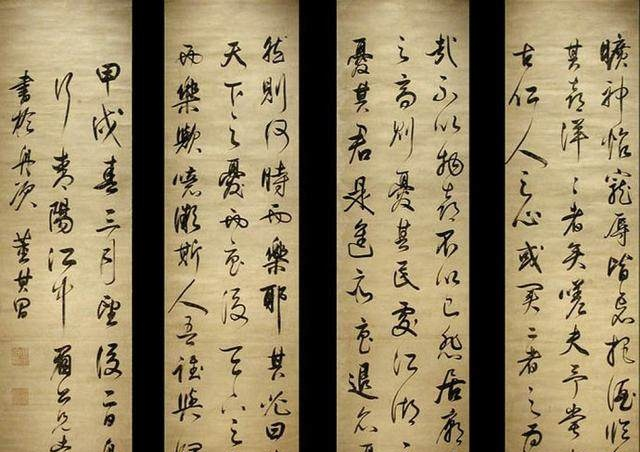 曠神怡寵辱皆忘把酒臨
其喜洋〻者矣嗟夫予嘗
古仁人之心或異二者之為
哉不以物喜不以己悲居廟
之高則憂其民處江湖之
憂其君是進亦憂退亦憂
然則何時而樂耶其必曰
天下之憂而憂後天下之
而樂歟噫微斯人吾誰與歸
甲戌春三月望後二日舟
行陽江中眉公兄
書於舟次董其昌